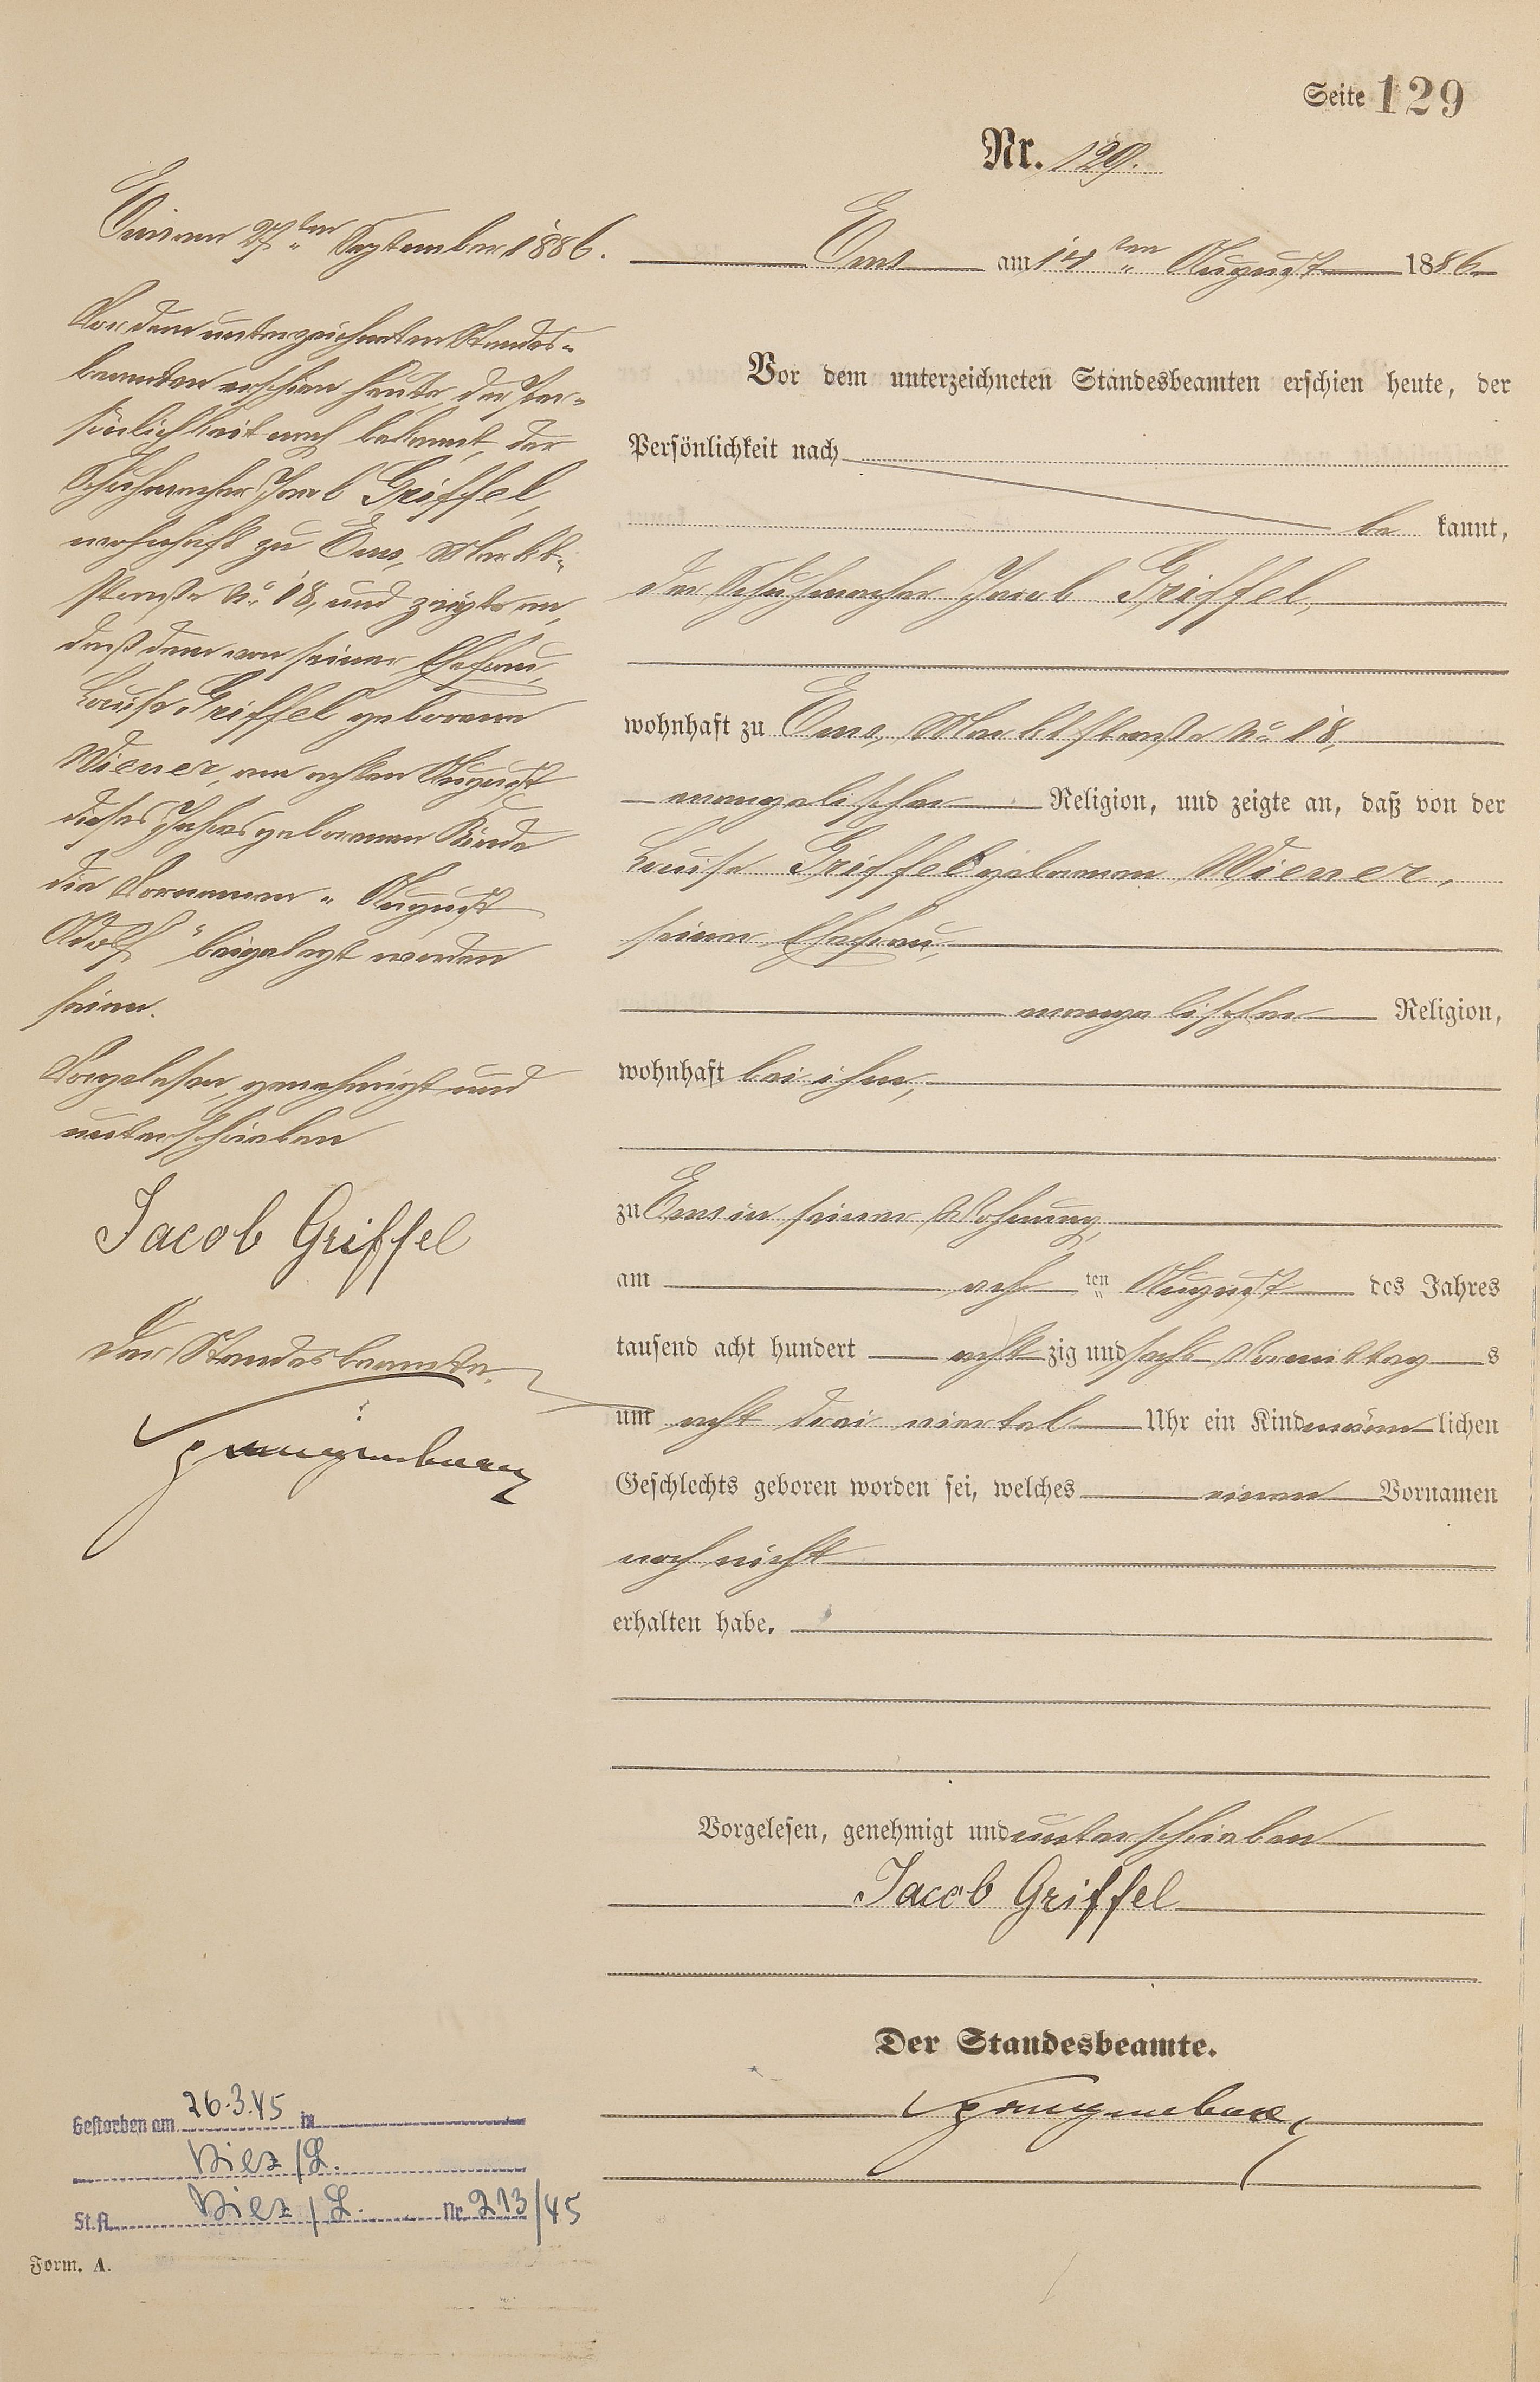 Seite 129
Nr. 129.
Ems am 14ten August 1886
Vor dem unterzeichneten Standesbeamten erschien heute, der
Persönlichkeit nach
be kannt,
der Schuhmacher Jacob Griffel,
wohnhaft zu Ems, Marktstraße No 18,
evangelischer Religion, und zeigte an, daß von der
Louise Griffel geborenen Wiener,
seiner Ehefrau,
evangelischer Religion,
wohnhaft bei ihm,
zu Ems in seiner Wohnung,
am ach ten August des Jahres
tausend acht hundert acht zig und sechs Vormittag s
um acht drei viertel Uhr ein Kind männ lichen
Geschlechts geboren worden sei, welches einen Vornamen
noch nicht
erhalten habe.
Vorgelesen, genehmigt und unterschrieben
Jacob Griffel
Der Standesbeamte.
Ems am 27ten September 1886.
Vor dem unterzeichneten Standes-
beamten erschien heute, der Per-
sönlichkeit nach bekannt, der
Schuhmacher Jacob Griffel,
wohnhaft zu Ems, Markt-
straße No 18, und zeigte an,
daß dem von seiner Ehefrau,
Louise Griffel geborenen
Wiener, am achten August
dieses Jahres geborenen Kinde
die Vornamen „August
Adolf“ beigelegt worden
seien.
Vorgelesen, genehmigt und
unterschrieben
Jacob Griffel
Der Standesbeamte.
Gestorben am 26.3.45 in
Diez/L.
St.A. Diez/L. Nr. 213/45
Form. A.